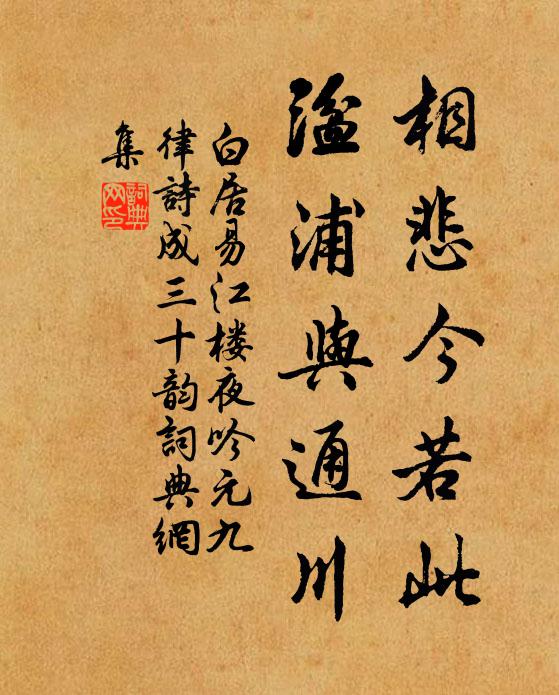 相悲今若此
湓浦與通川
白居易江楼夜吟元九
律詩成三十韵詞典網
集
詞典网印